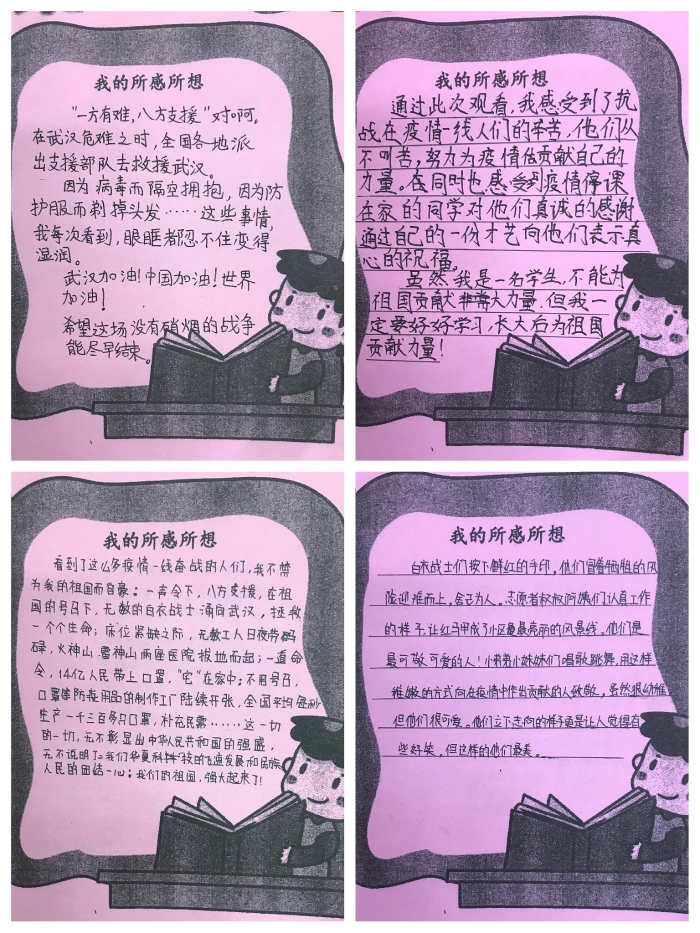 我的所感所想
“一方有难，八方支援”对啊。
在武汉危难之时，全国各地派
出支援部队去救援武汉。
因为病毒而隔空拥抱，因为防
护服而剃掉头发……这些事情，
我每次看到，眼眶都忍不住变得
湿润。
武汉加油！中国加油！世界
加油！
希望这场没有硝烟的战争
能尽早结束。
我的所感所想
通过此次观看，我感受到了抗
战在疫情一线人们的辛苦，他们从
不叫苦，努力为疫情估贡献自己的
力量。在同时也感受到疫情停课
在家的同学对他们真诚的感谢
通过自己的一份才艺向他们表示真
心的祝福。
虽然我是一名学生，不能为
祖国贡献非常大力量，但我一
定要好好学习，长大后为祖国
贡献力量！
我的所感所想
看到了这么多疫情一线奋战的人们，我不禁
为我的祖国而自豪：一声令下，八方支援，在祖
国的号召下，无数的白衣战士涌向武汉，拯救
一个个生命；床位紧缺之际，无数工人日夜劳
碌，火神山、雷神山两座医院拔地而起；一道命
令，14亿人民带上口罩，“宅”在家中；不用号召，
口罩等防疫用品的制作工厂陆续开张，全国平均每秒
生产一千三百多只口罩，补充民需……这一切
的一切，无不彰显出中华人民共和国的强盛，
无不说明了：我们华夏科技的飞速发展和民族
人民的团结一心；我们的祖国，强大起来了！
我的所感所想
白衣战士们按下鲜红的手印，他们冒着牺牲的风
险迎难而上，舍己为人。志愿者叔叔阿姨们认真工作
的样子，让红马甲成了小区最亮丽的风景线。他们是
最可敬、可爱的人！小弟弟小妹妹们唱歌跳舞，用这样
稚嫩的方式向在疫情中作出贡献的人致敬，虽然很幼稚
但他们很可爱。他们立下志向的样子更是让人觉得有
些好笑，但这样的他们最美。